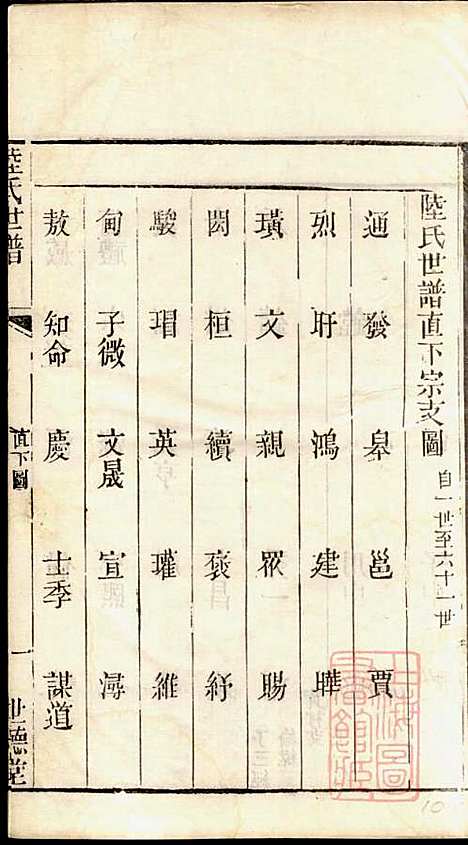 陸氏世譜直下宗支圖 自一世至六十一世
通 發 皋 邕 賈
烈 盱 鴻 建 曄
璜 文 親 眾 賜
閎 桓 續 褒 紆
駿 瑁 英 瓘 維
甸 子微 文晟 宣 潯
敖 知命 慶 士季 謀道
陸氏世譜 直下圖 一 世德堂
上海圖書館藏
10